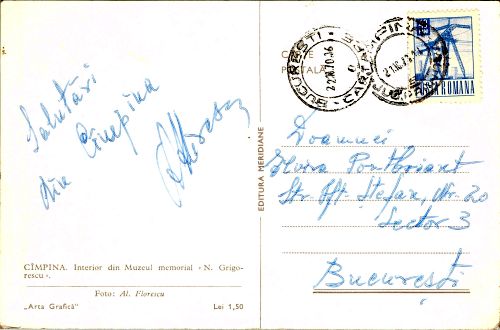 Salutări
din Cîmpina
CÎMPINA. Interior din Muzeul memorial «N. Grigo-
rescu».
Foto: Al. Florescu
„Arta Grafică" Lei 1,50
EDITURA MERIDIANE
CARTE
POȘTALĂ
BUCUREȘTI
POSTA ROMANA
Doamnei
Elvira Pontbriant
Str. Oft. Ștefan, Nr. 20
Sector 3
București